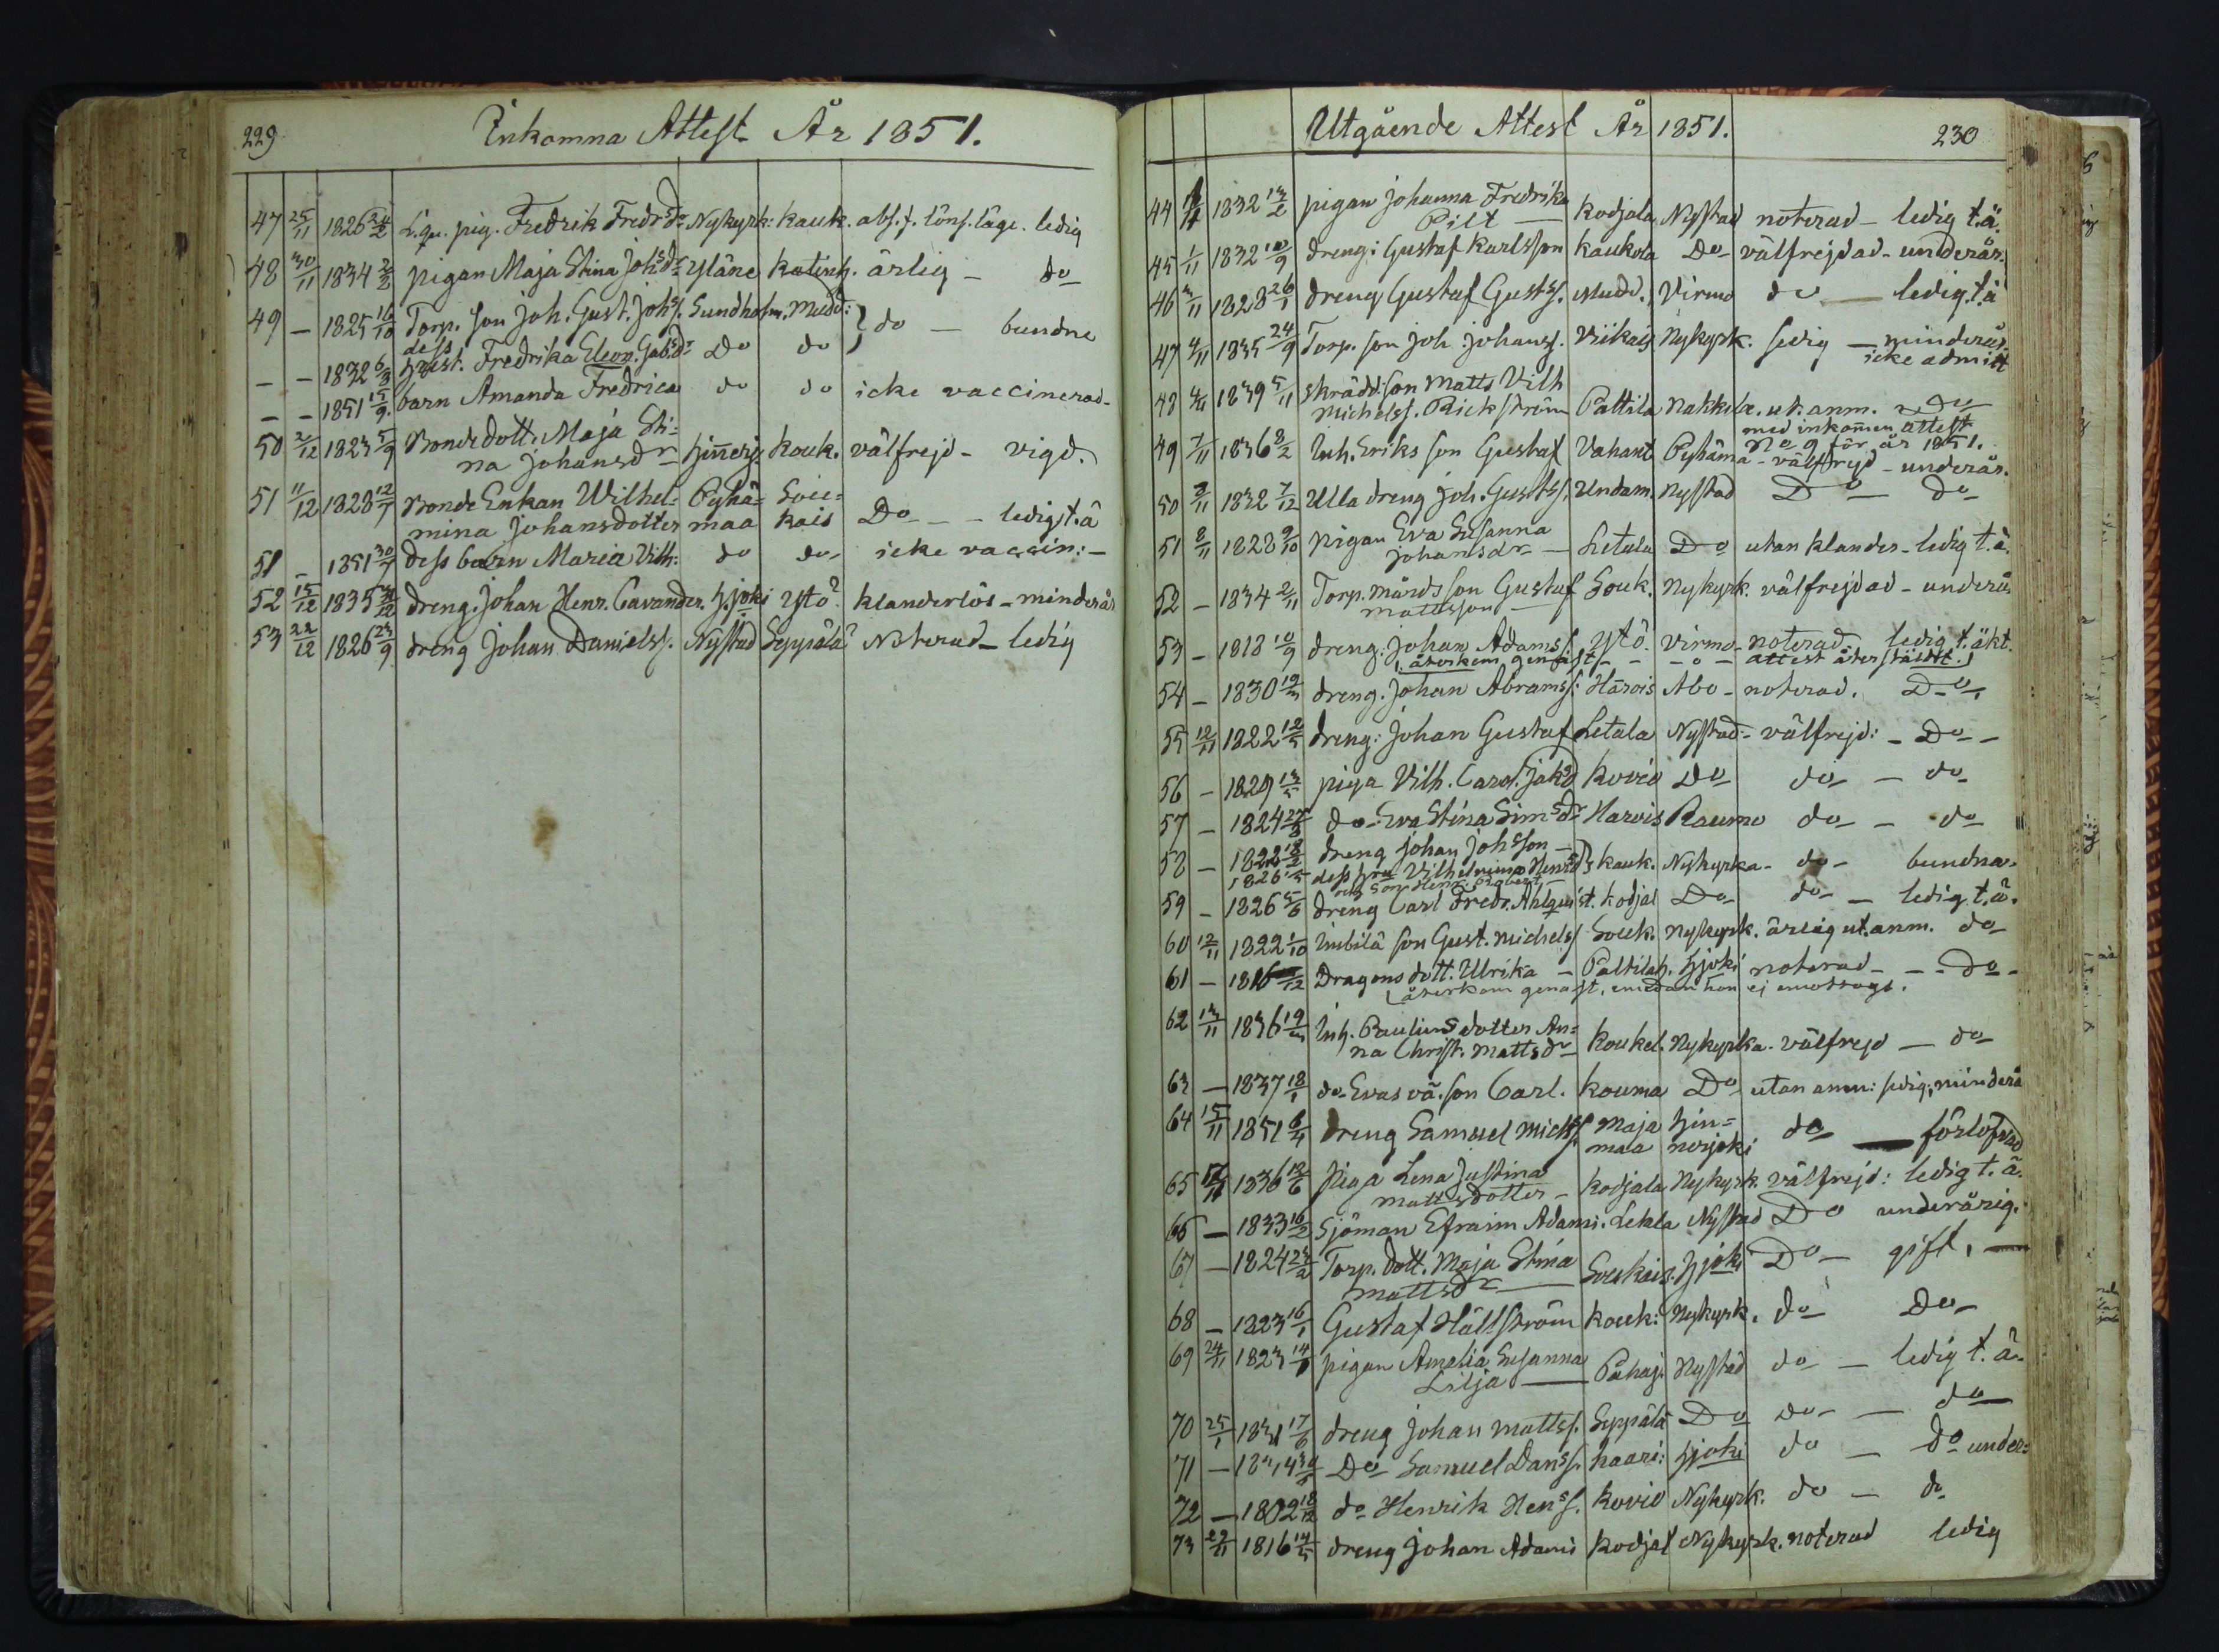 229 Inkomna Attest År 1851.
47 25/11 1826 24/2 L.qv. pig. Fredrik Fredrsdr Nykyrk: kauk. abs. f. lönsk. läge. ledig
48 30/11 1834 2/2 pigan Maja Stina Johsdr Yläne Katinh. ärlig – do
49 – 1825 16/10 Torp. son Joh. Gust. Johs. Sundholm. Mudd:
dess
– – 1832 6/8 hust. Fredrika Eleon. Gabsdr Do do } do – bundne
– – 1851 15/9 barn Amanda Fredrica do do icke vaccinerad
50 2/12 1823 5/9 Bondedott. Maja Sti=
na Johansdr Hinnerj. kouk. välfrejd – vigd.
51 11/12 1828 12/7 Bonde Enkan Wilhel= Pyhä= Sou=
mina Johansdotter maa kais Do – – ledig t.ä
51 – 1851 30/7 dess barn Maria Vilh: do do icke vaccin: –
52 15/12 1835 31/12 dreng. Johan Henr. Cavander. Hjoki Ytö? klanderlös – minderår
53 22/12 1826 23/9 dreng Johan Danielss. Nystad Seppälä? Noterad – ledig
Utgående Attest År 1851. 230
44 1832 13/2 pigan Johanna Fredrika
Pilt – Kodjala Nystad noterad – ledig t.ä.
45 1/11 1832 10/9 dreng: Gustaf Karlsson Kaukola Do välfrejdad – underår.
46 3/11 1828 26/1 dreng Gustaf Gusts. Mudd. Virmo do – ledig t.ä
47 4/11 1835 24/9 Torp. son Joh Johanss. Viikais Nykyrk. sedig – minderår.
icke admitt
48 4/11 1839 5/11 skrädd: son Matts Vilh
Michelss. Rickström Pattila Nakkila. ut. anm. Do
med inkommen attest
49 7/11 1836 8/2 Inh. Eriks son Gustaf Vahant Pyhäma No 9 för år 1851.
– välfrejd – underår.
50 8/11 1832 7/12 Ulla dreng Joh. Gustss. Undam. Nystad Do – do
51 8/11 1828 9/10 pigan Eva Susanna
Johansdr – Letala Do utan klander – ledig t.ä.
52 – 1834 2/11 Torp. Mårds son Gustaf Souk. Nykyrk. välfrejdad – underår
Mattsson
53 – 1818 10/9 dreng: Johan Adamss. Ytö. Virmo – noterad ledig t. äkt.
(återkom genast – – – o – attest återställdt.)
54 – 1830 19/3 dreng. Johan Abramss: Härois Åbo – noterad. Do
55 12/11 1822 12/5 dreng: Johan Gustaf Letala Nystad: – välfrejd: – Do –
56 – 1829 13/5 piga Vilh. Carol. Jaksd Kovio Do do – do
57 – 1824 27/8 do Eva Stina Simsdr Harois Raumo do – do
58 – 1822 18/2 dreng Johan Johsson –
1826 dess hru Vilhelmina Hensd kauk. Nykyrka – do – bundna.
och son Henr. Robert
59 – 1826 5/6 dreng Carl Fredr. Ahlquist. Kodjal Do do – ledig t.ä.
60 12/11 1822 1/10 Imbilä son Gust. Michels Souk. Nykyrk. ärlig ut. anm. do
61 – 1816 Dragons dott. Ulrika – Paltilah. Hjoki noterad – – Do –
(återkom genast, emedan hon ej emottogs.
62 13/11 1836 19/3 Inh. Paulius dotter An=
na Christ. Mattsdr – Koukel. Nykyrka. välfrejd – do
63 – 1837 18/1 do Evas oä. son Carl. Kouma Do utan anm: sedig, minderå
64 15/11 1851 6/4 dreng Samuel Michss Maja= Hin=
maa nerjoki do – förlofvad
65 1836 12/6 Piga Lena Justina
Mattsdotter – Kodjala Nykyrk. välfrejd: ledig t.ä.
66 – 1833 16/2 Sjöman Efraim Adams. Letala Nystad Do underårig.
67 – 1824 23/2 Torp. dott. Maja Stina
Mattsdr – Soukais. Hjoki Do – gift. –
68 – 1823 16/1 Gustaf Hällström kouk: Nykyrk. do Do
69 24/11 1823 pigan Amalia Susanna
Lilja – Påhaj. Nystad do – ledig t.ä.
70 25/1 17/6 dreng Johan Mattss. Seppälä Do do – do
71 – Do Samuel Danss. Kaari: Hjoki do – do under=
72 – 1802 18/12 do Henrik Henss. Kovio Nykyrk. do – do
73 29/11 1816 14/5 dreng Johan Adams Kodjal Nykyrk. noterad ledig